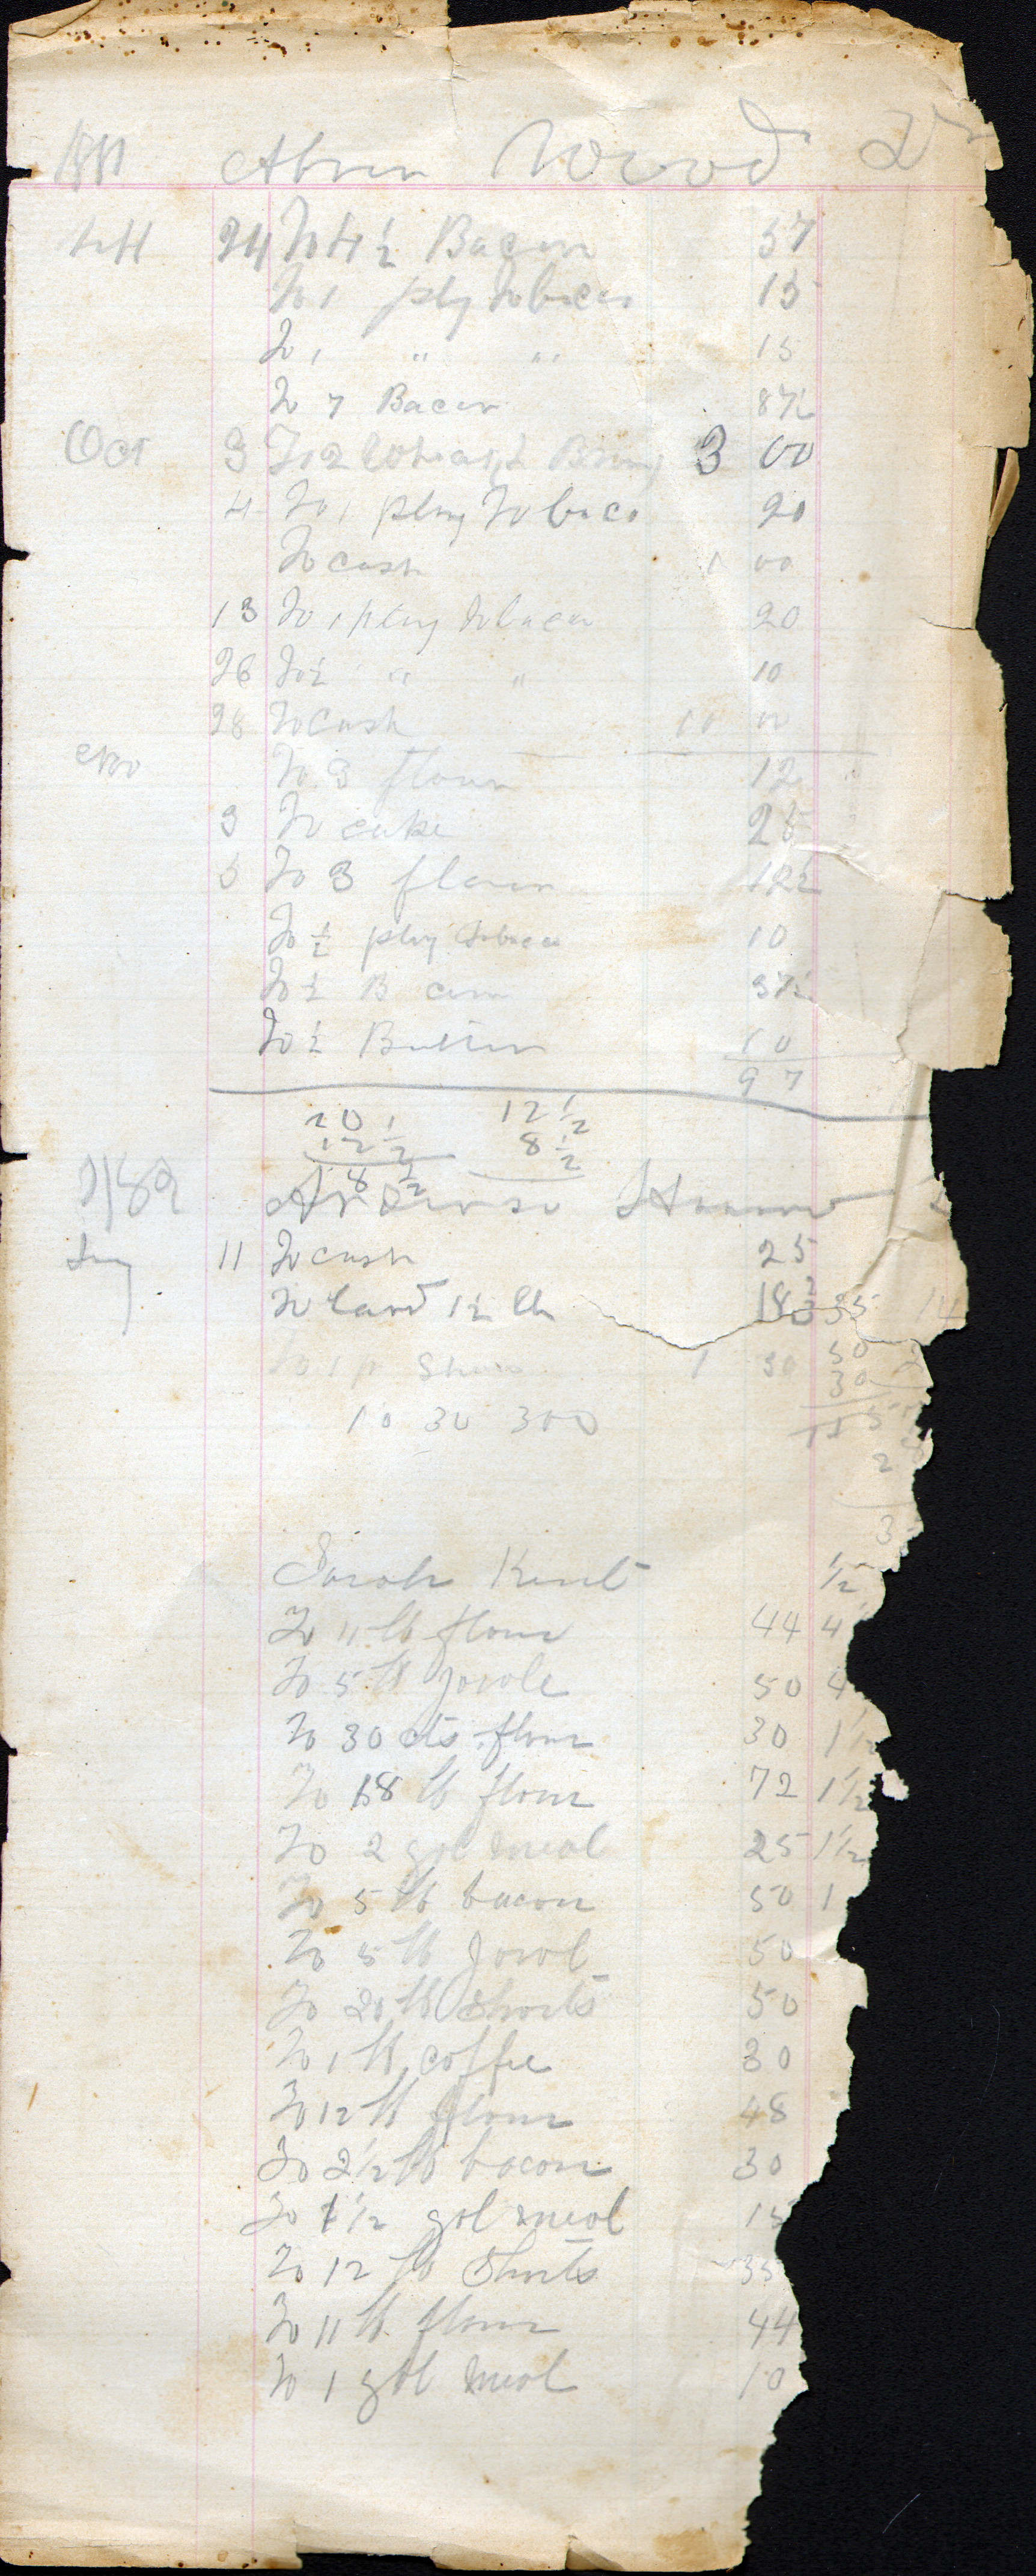 1881 Abner Wood Dr
24 To 4 ½ Bacon 57
To 1 plug Tobacco 15
To 1 " " 15
To 7 Bacon 87½
Oct 3 To 2 3 00
4 To 1 plug Tobaco 20
To cash 1 00
13 To 1 plug Tobacco 20
26 To ½ " " 10
28 To cash 10 00
Nov To 3 flour 12
3 To cake 25
5 To 3 flour 12½
To ½ plug Tobacco 10
To ½ B 37½
To ½ Butter 10
97
20 12½
12½ 8½
8½
11 To cash 25
To lard 1½ lb 18 35
To 1 p Shoes 1 30 50
30
10 30 300
2
3
Sarah Kent ½
To 11 lb flour 44 4
To 5 lb Jowle 50 4
To 30 cts flour 30 1½
To 18 lb flour 72 1½
To 2 gol meal 25 1½
To 5 lb bacon 50 1
To 5 lb Jowl 50
To 20 lb Shorts 50
To 1 lb coffee 30
To 12 lb flour 48
To 2½ lb bacon 30
To 1½ gol meal 15
To 12 lb Shorts 35
To 11 lb flour 44
To 1 gol meal 10